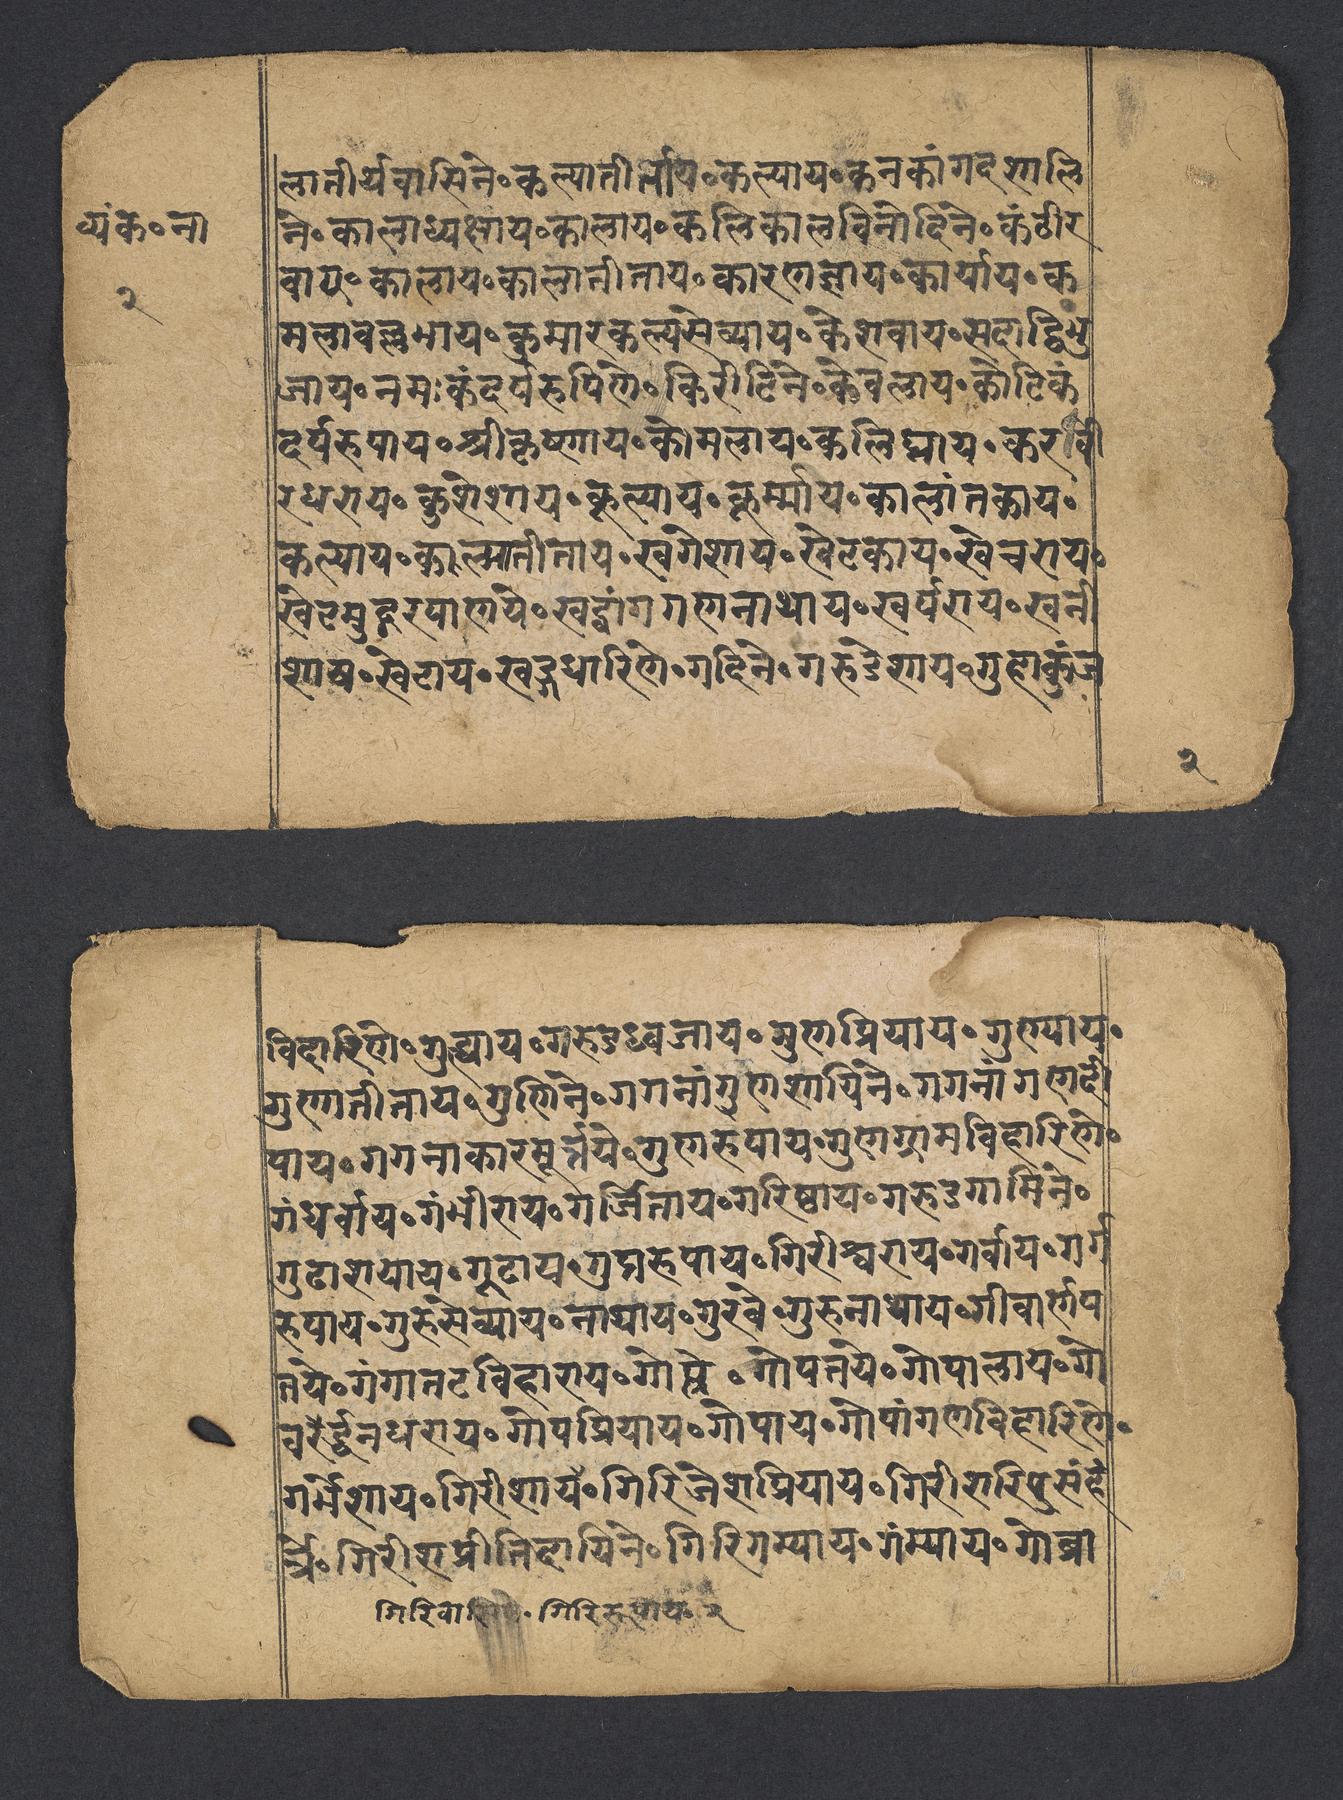 लातीर्थवासिने॰कल्पातीर्ताय॰कल्पाय॰कनकांगदशालि
व्यंक॰ना
२
ने॰कालाध्यक्षाय॰कालाय॰कलिकालविनोदिने॰कंठीर
वाय॰कालाय॰कालातीताय॰कारणज्ञाय॰कार्याय॰क
मलावल्लभाय॰कुमारकल्पसेव्याय॰केशवाय॰सदाद्विभु
जाय॰नमःकंदर्परूपिणे॰किरीटिने॰केवलाय॰कोटिकं
दर्परूपाय॰श्रीकृष्णाय॰कोमलाय॰कलिघ्नाय॰करवी
रधराय॰कुशेशाय॰कूल्याय॰कूर्म्माय॰कालांतकाय॰
कल्याय॰कालातीताय॰खगेशाय॰खेटकाय॰खेचराय॰
खेटमुद्गरपाणये॰खट्वांगगणनाथाय॰खर्पराय॰खनी
शाय॰खेटाय॰खड्गधारिणे॰गदिने॰गरुडेशाय॰गुहाकुंज
२
विहारिणे॰गुह्याय॰गरुडध्वजाय॰गुणप्रियाय॰गुण्याय॰
गुणातीताय॰गुणिने॰गगनांगुणशायिने॰गगनांगणदी
पाय॰गगनाकारमूर्त्तये॰गुणरूपाय॰गुणग्रामविहारिणे॰
गंधर्वाय॰गंभीराय॰गर्जिताय॰गरिष्ठाय॰गरुडगामिने॰
गुढाशयाय॰गूढाय॰गुप्तरूपाय॰गिरीश्वराय॰गर्वाय॰गर्ग
रूपाय॰गुरुसेव्याय॰नाथाय॰गुरवे॰गुरुनाथाय॰गीर्वाणप
तये॰गंगातटविहाराय॰गोप्त्रे॰गोपतये॰गोपालाय॰गो
वर्द्धनधराय॰गोपप्रियाय॰गोपाय॰गोपांगणविहारिणे॰
गर्भेशाय॰गिरीशाय॰गिरिजेशप्रियाय॰गिरीशरिपुसंह
र्त्रे॰गिरीशप्रीतिदायिने॰गिरिगम्याय॰गंम्याय॰गोत्रा
गिरिवासिने॰गिरिरूपाय॰२